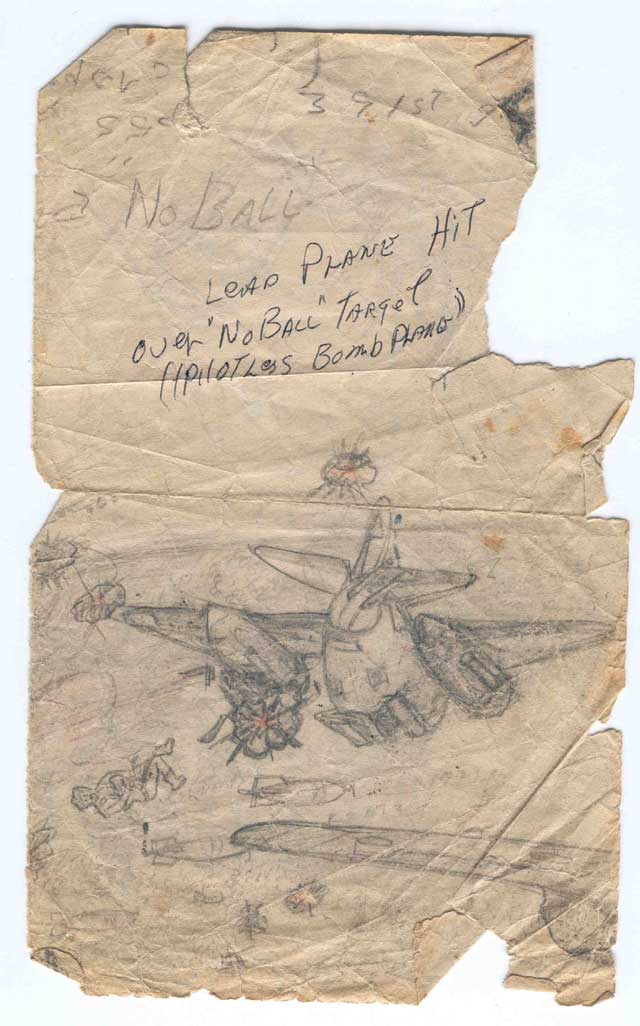 391ST
NO BALL
LeAD PLANE HiT
over "NO BALL" TARgeT
((PILOTLess Bomb PLANE))